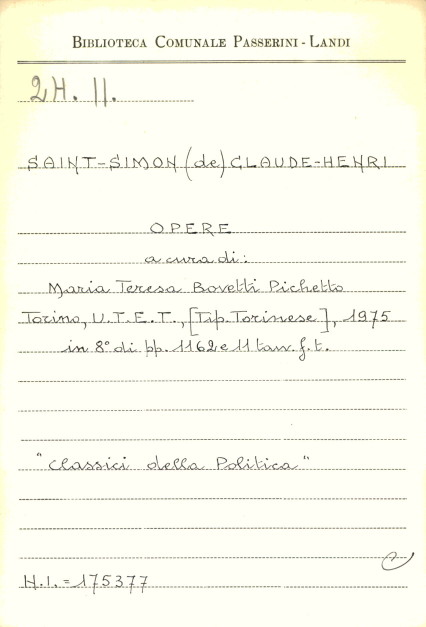 BIBLIOTECA COMUNALE PASSERINI - LANDI
2H. II.
SAINT-SIMON (de) CLAUDE-HENRI
OPERE
a cura di:
Maria Teresa Bovetti Pichetto
Torino, U.T.E.T., [Tip. Torinese], 1975
in 8° di pp. 1162 e 11 tav. f. t.
"Classici della Politica"
H.I. = 175377